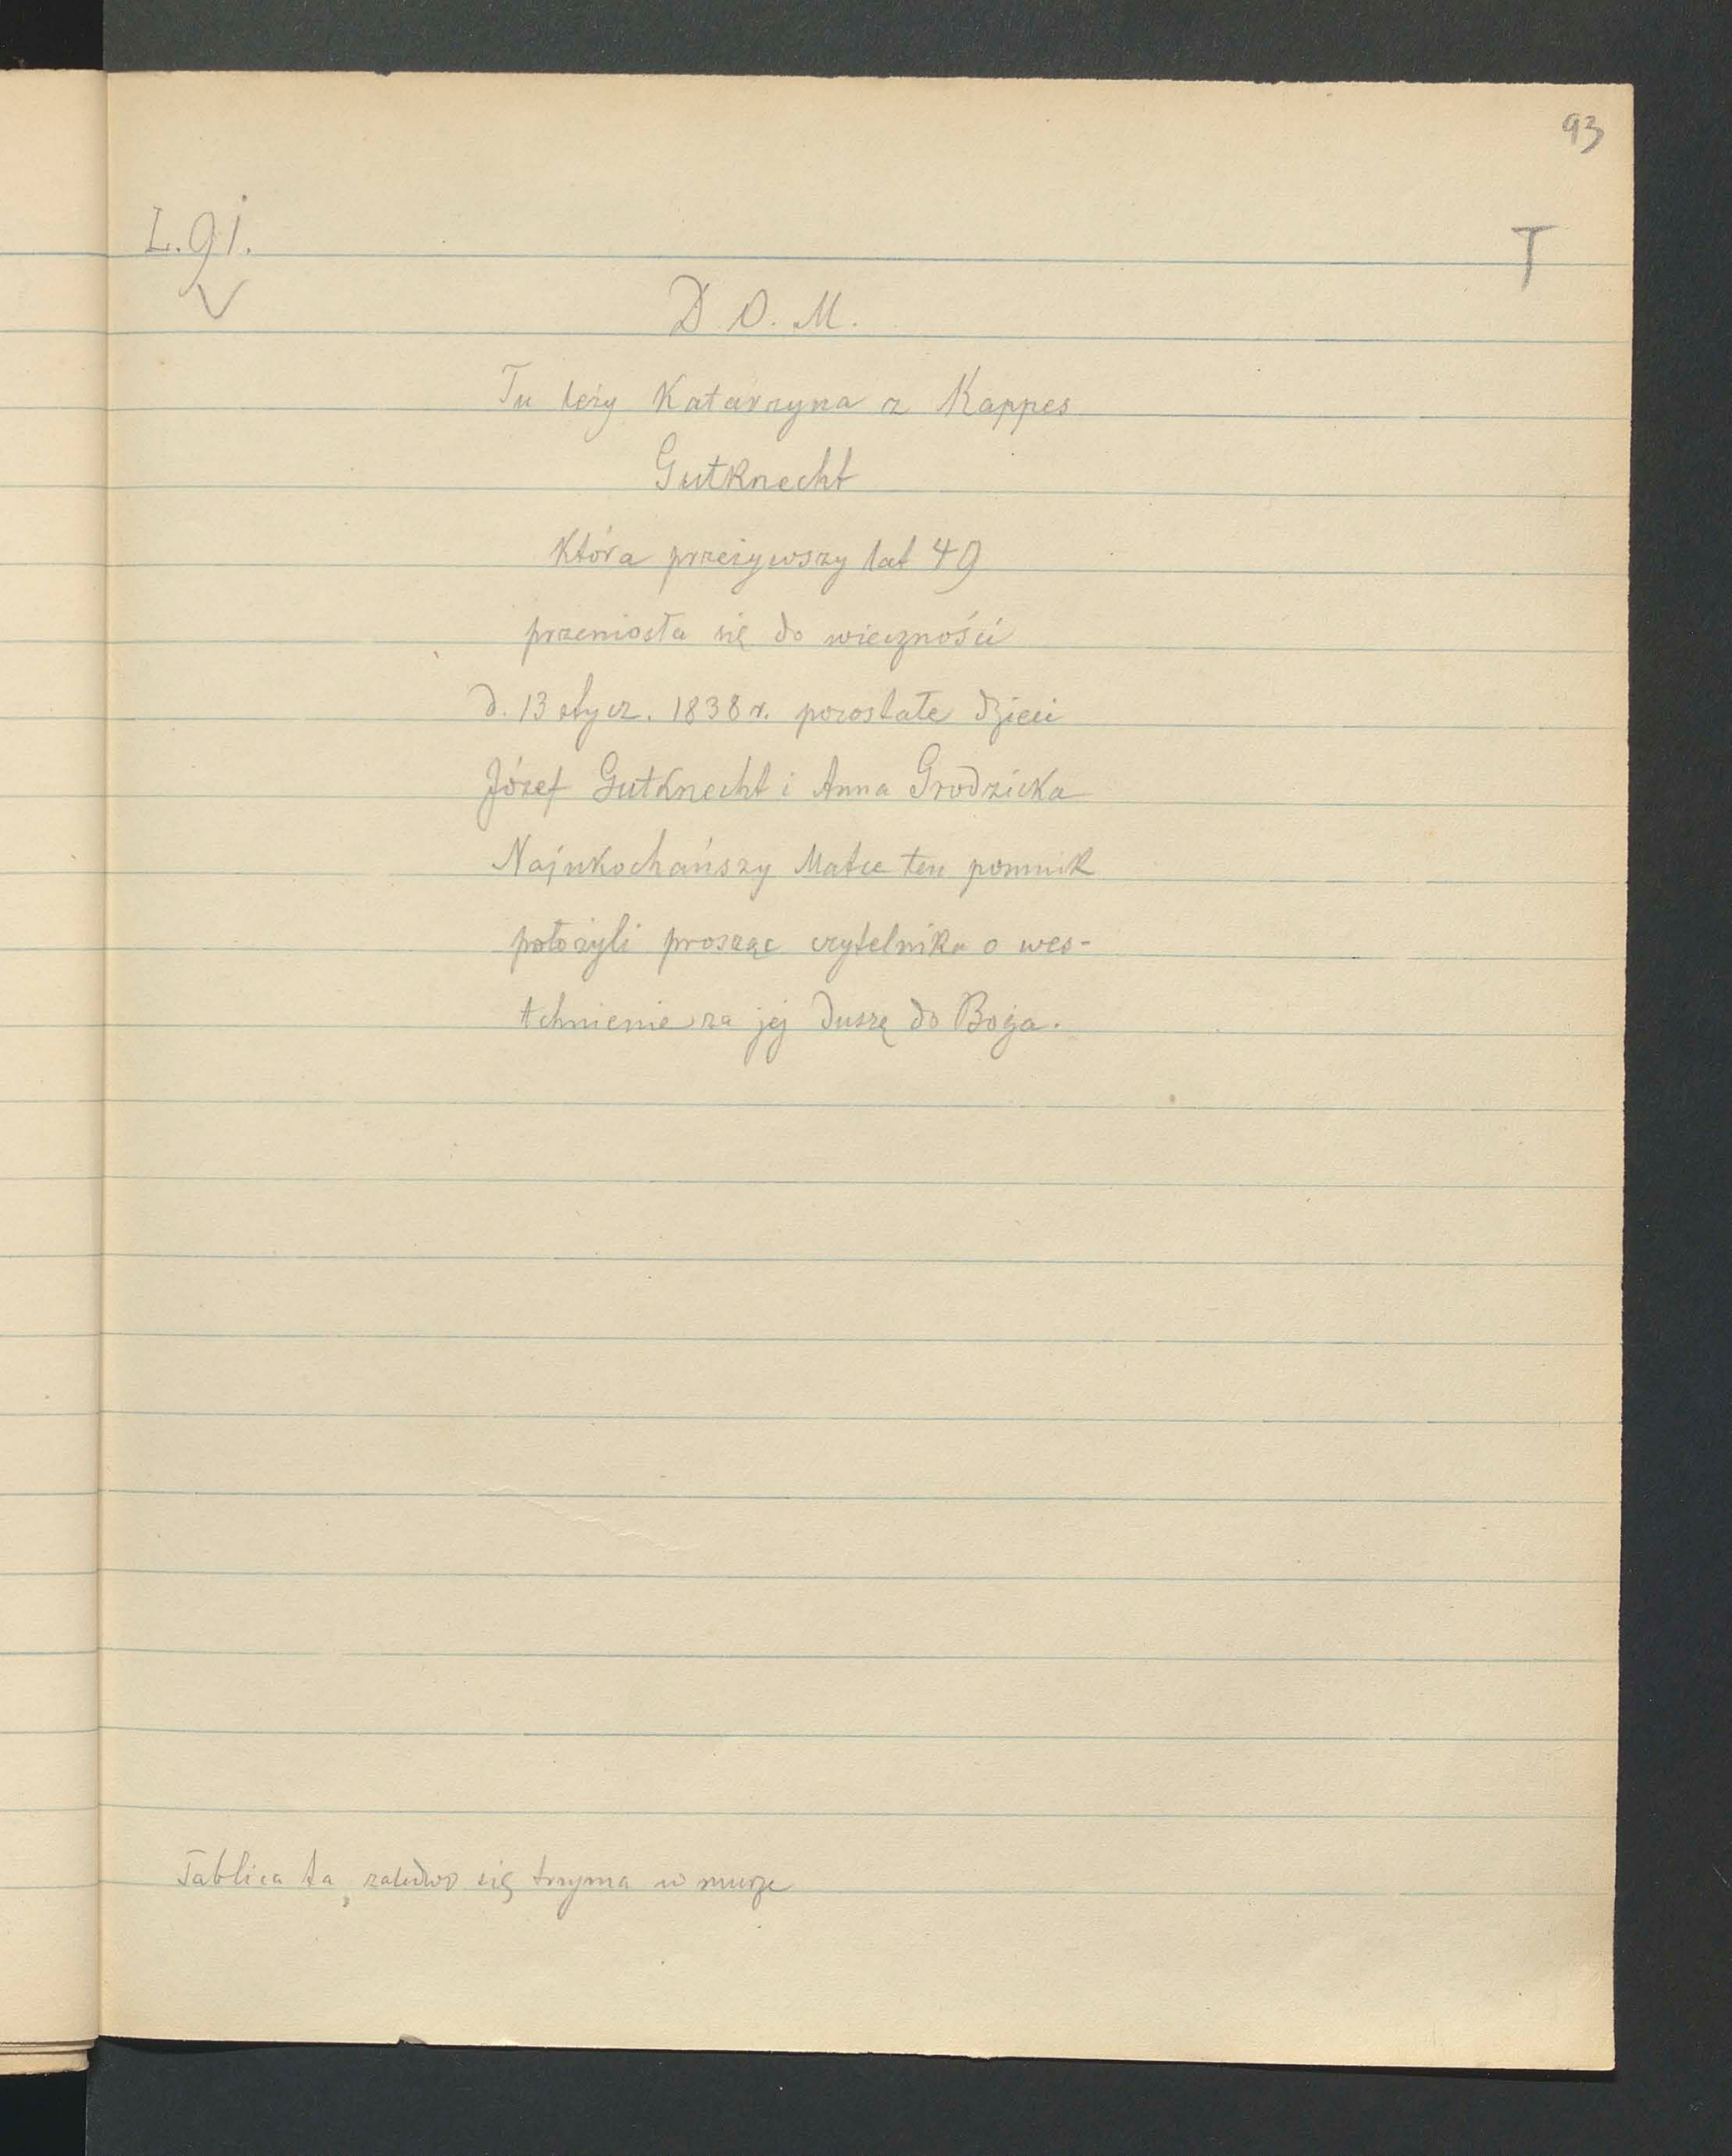 93
L. 91.
T
D. O. M.
Tu leży Katarzyna z Kappes
Gutknecht
która przeżywszy lat 49
przeniosła się do wieczności
d. 13 stycz. 1838 r. pozostałe dzieci
Józef Gutknecht i Anna Grodzicka
Najukochańszy Matce ten pomnik
położyli prosząc czytelnika o wes-
tchnienie za jej duszę do Boga.
Tablica ta, zaledwo się trzyma w murze